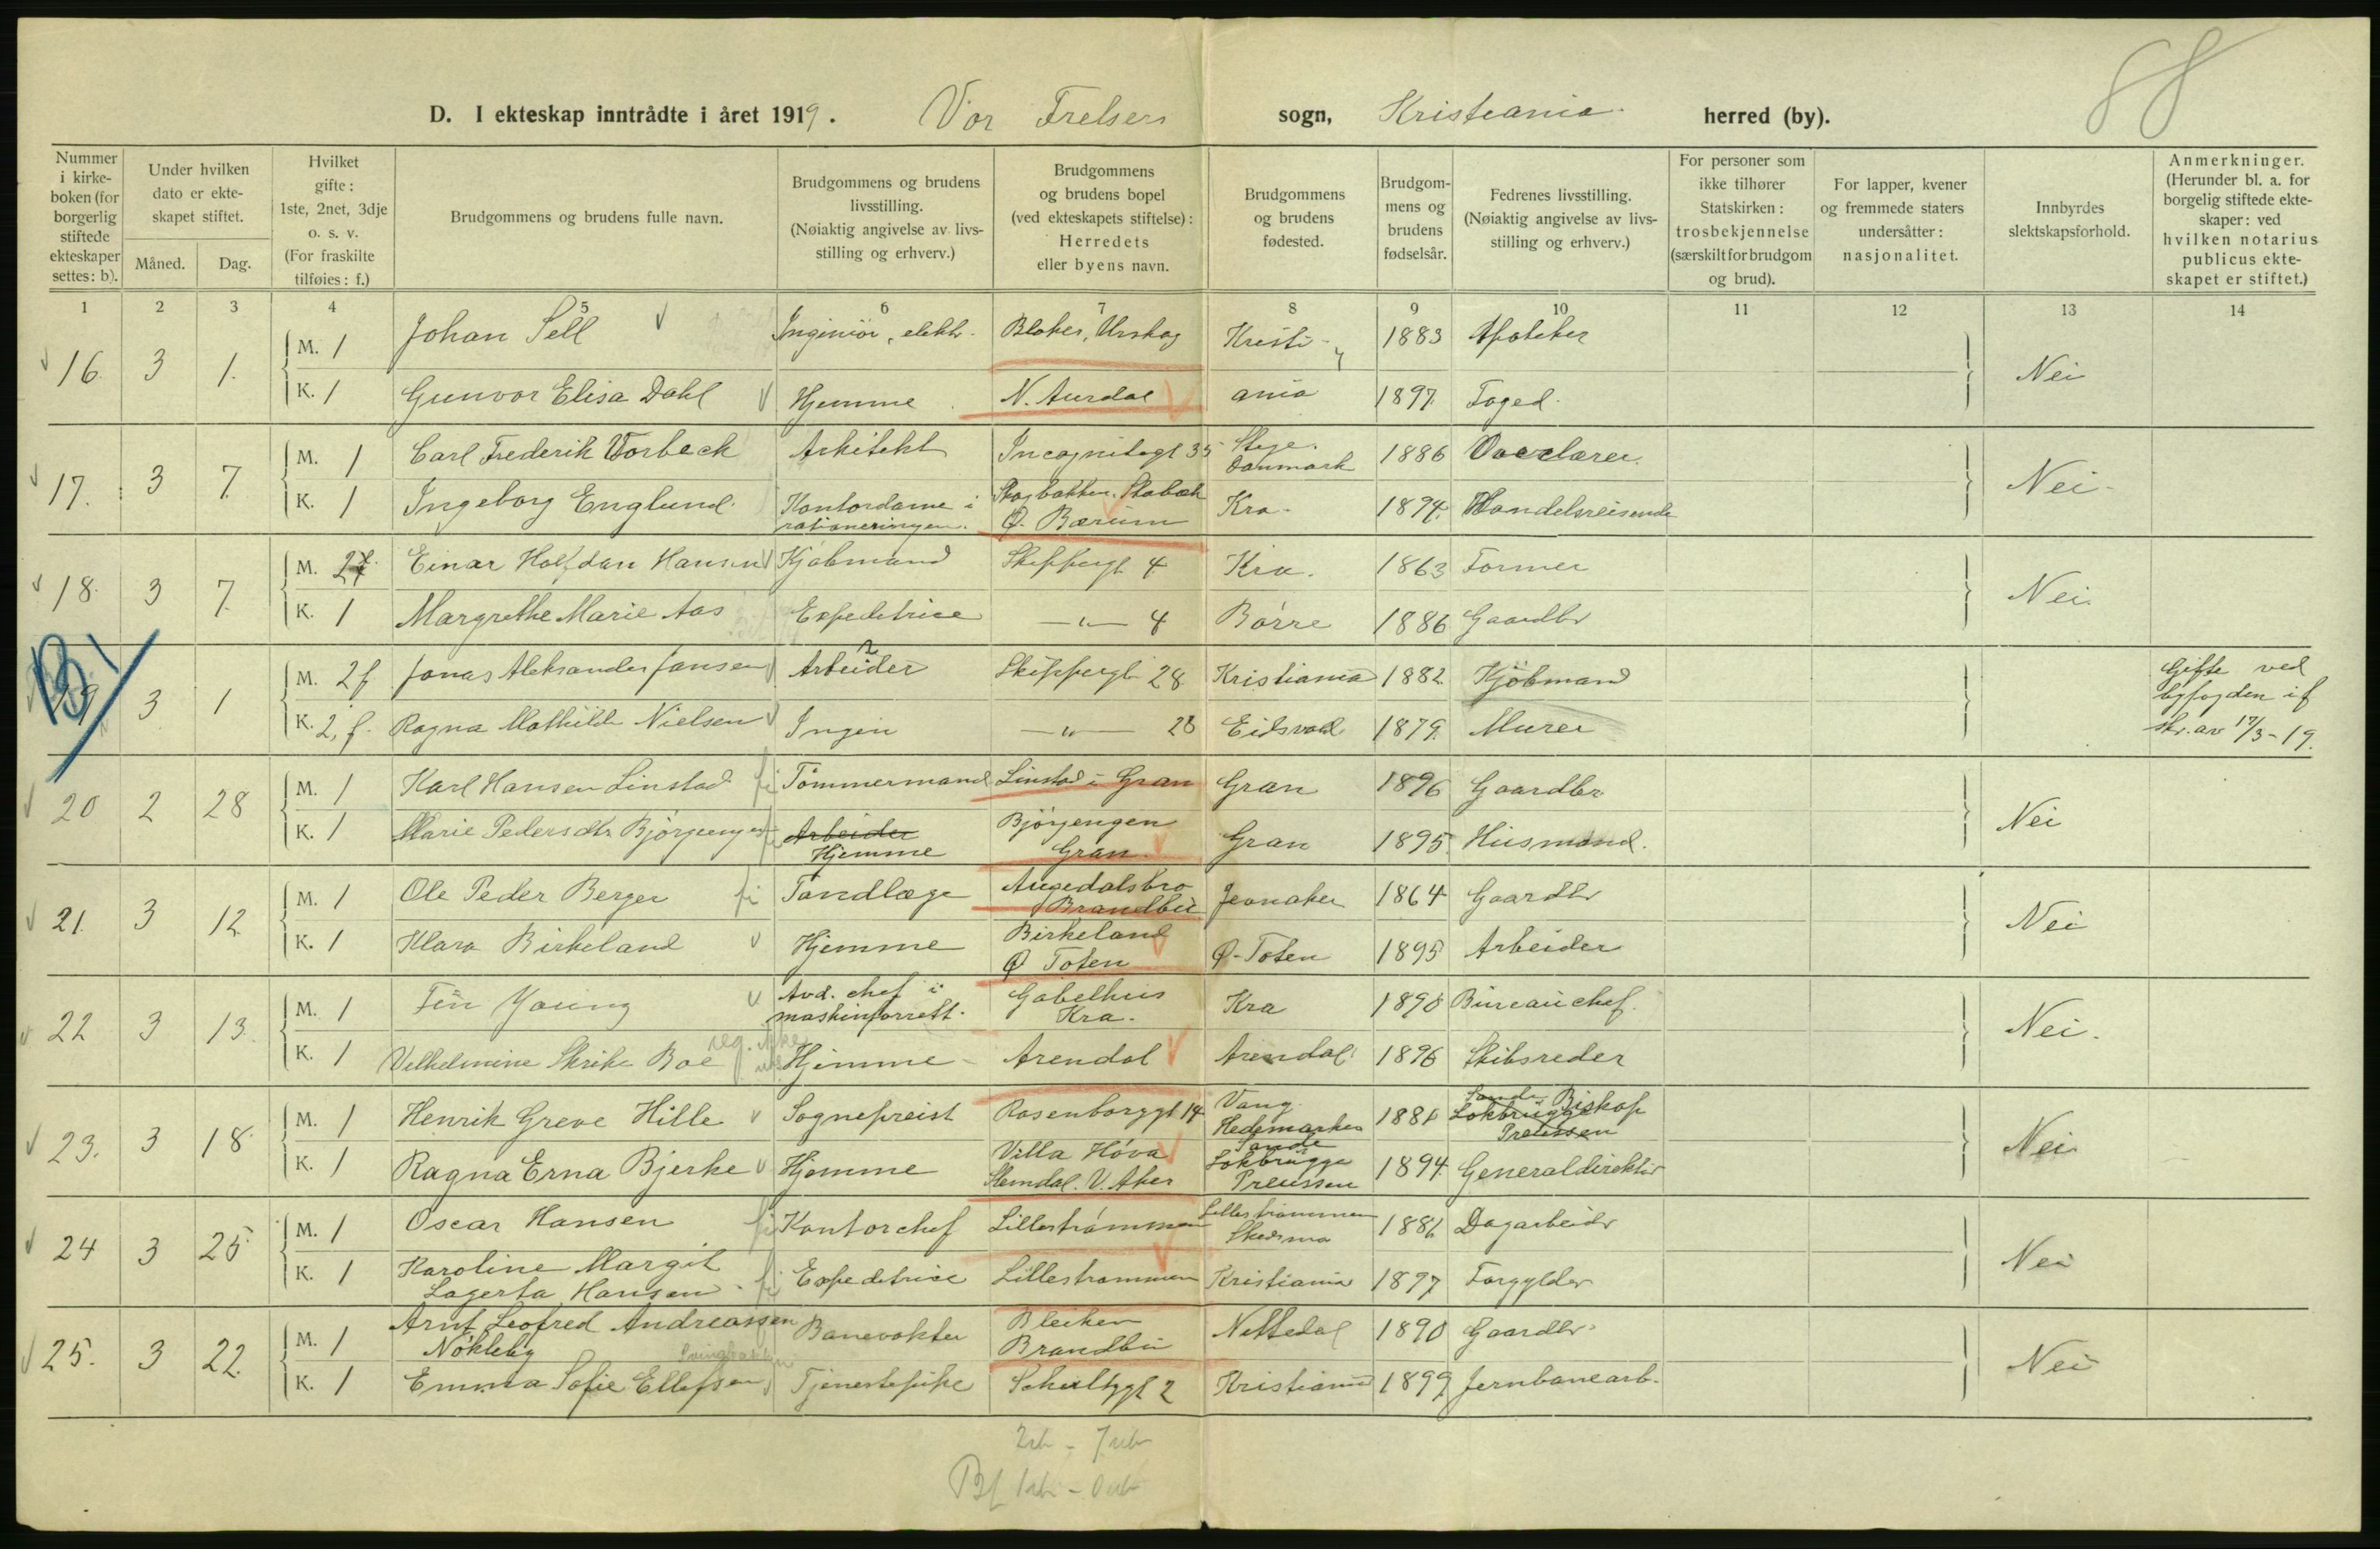 88
D. I ekteskap inntrådte i året 1919. Vor Frelsers sogn, Kristiania herred (by).
Nummer i kirke-boken (for borgerlig stiftede ekteskaper settes: b).
Under hvilken dato er ekte-skapet stiftet.
Måned. Dag.
Hvilket gifte: 1ste, 2net, 3dje o. s. v. (For fraskilte tilføies: f.)
Brudgommens og brudens fulle navn.
Brudgommens og brudens livsstilling. (Nøiaktig angivelse av livs-stilling og erhverv.)
Brudgommens og brudens bopel (ved ekteskapets stiftelse): Herredets eller byens navn.
Brudgommens og brudens fødested.
Brudgom-mens og brudens fødselsår.
Fedrenes livsstilling. (Nøiaktig angivelse av livs-stilling og erhverv.)
For personer som ikke tilhører Statskirken: trosbekjennelse (særskilt for brudgom og brud).
For lapper, kvener og fremmede staters undersåtter: nasjonalitet.
Innbyrdes slektskapsforhold.
Anmerkninger. (Herunder bl. a. for borgelig stiftede ekte-skaper: ved hvilken notarius publicus ekte-skapet er stiftet.)
1 2 3 4 5 6 7 8 9 10 11 12 13 14
16. 3 1. M. 1 Johan Sell Ingeniör, elektr. Blaker, Urskog Kristi- 1883 Apoteker Nei
K. 1 Gunvor Elisa Dahl Hjemme N. Aurdal ania 1897 Foged.
17. 3 7. M. 1 Carl Frederik Vorbeck Arkitekt Incognitogt 35 Stege. Danmark 1886 Overlærer. Nei.
K. 1 Ingeborg Englund. Kontordame i rationeringen. Skogbakken. Stabæk Ø. Bærum Kra. 1894. Handelsreisende
18. 3 7. M. 2f. Einar Halfdan Hansen Kjöbmand Skippergt 4 Kra. 1863 Former Nei.
K. 1 Margrethe Marie Aas Expeditrice —"— 4 Borre 1886 Gaardbr
B 19. 3 1 M. 2f Jonas Aleksander Jansen Arbeider Skippergt 28 Kristiania 1882 Kjöbmand Gifte ved byfogden if skr. av 17/3-19.
K. 2, f. Ragna Mathilde Nielsen Ingen —"— 28 Eidsvold 1879. Murer
20 2 28 M. 1 Karl Hansen Linstad fi Tömmermand Linstad i Gran Gran 1896 Gaardbr. Nei
K. 1 Marie Pedersdtr Björgengen fi Arbeider Hjemme Björgengen Gran. Gran 1895. Husmand.
21. 3 12. M. 1 Ole Peder Berger fi Tandlæge Augedalsbro Brandbu Jevnaker 1864 Gaardbr Nei
K. 1 Klara Birkeland Hjemme Birkeland Ø Toten Ø-Toten 1895 Arbeider
22 3 13. M. 1 Finn Young Avd. chef i maskinforrett. Gabelhus Kra. Kra 1890 Bureauchef. Nei.
K. 1 Velhelmine Skrike Boe Hjemme Arendal Arendal 1896 Skibsreder
23. 3 18. M. 1 Henrik Greve Hille Sogneprest Rosenborggt 14 Vang. Hedemarken 1881 Sande Biskop Lokbrügge Preussen Nei
K. 1 Ragna Erna Bjerke Hjemme Villa Höva Slemdal. V. Aker Sande Lokbrügge Preussen 1894. Generaldirektör
24 3 25 M. 1 Oscar Hansen fi Kontorchef Lilleströmmen Lilleströmmen Skedsmo 1881 Dagarbeidr Nei
K. 1 Karoline Margit Lagerta Hansen fi Expeditrice Lillestrommen Kristiania 1897 Forgylder
25. 3 22. M. 1 Arnt Leofred Andreassen Nökleby Banevokter Bleiken Brandbu Nittedal 1890 Gaardbr. Nei
K. 1 Emma Sofie Ellefsen Tjenestepike Schultzgt 2 Kristiania 1899 Jernbanearb.